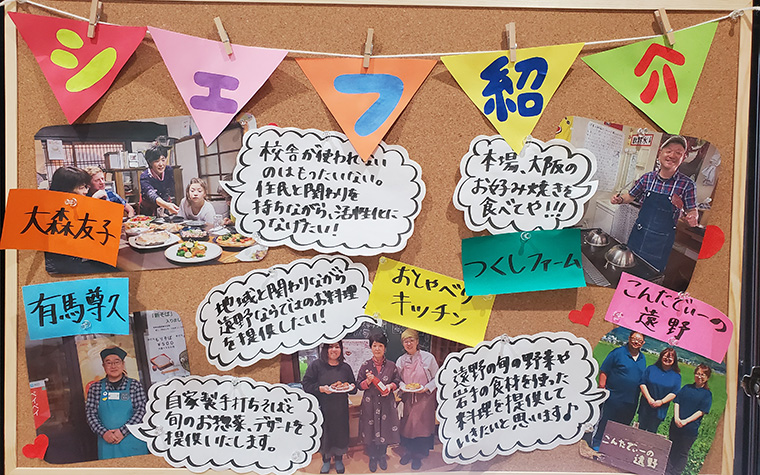 シェフ紹介
校舎が使われない
のはもったいない。
住民と関わりを
持ちながら、活性化に
つなげたい!
本場、大阪の
お好み焼きを
食べてや!!!
大森友子
つくしファーム
有馬尊久
地域と関わりながら
遠野ならではのお料理
を提供したい!
おしゃべり
キッチン
こんたでぃーの
遠野
自家製手打ちそばと
旬のお惣菜、デザートを
提供いたします。
遠野の旬の野菜や
岩手の食材を使った
料理を提供して
いきたいと思います♪
こんたでぃーの
遠野